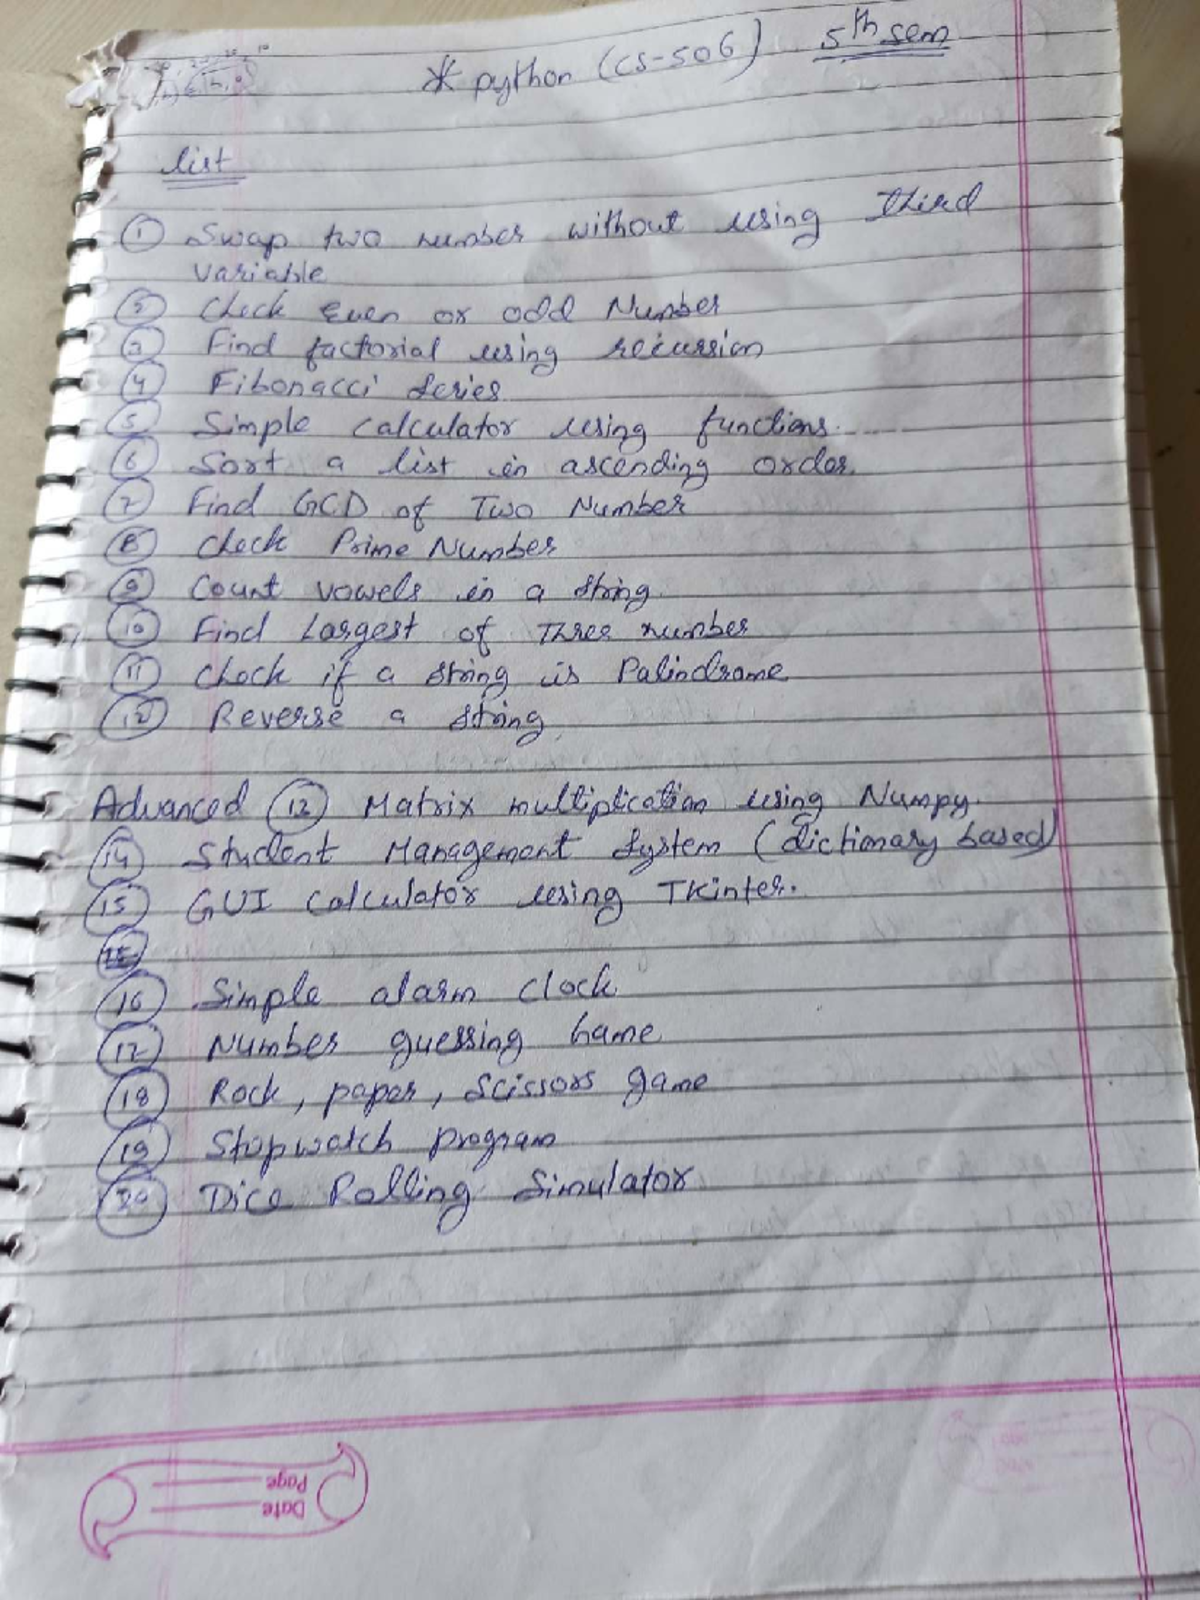 * python (CS-506) 5th sem
list
1 Swap two number without using third
variable
2 Check Even or odd Number
3 Find factorial using recursion
4 Fibonacci Series
5 Simple calculator using functions.
6 Sort a list in ascending order.
7 Find GCD of Two Number
8 Check Prime Number
9 Count vowels in a string.
10 Find Largest of Three number
11 Check if a string is Palindrome
12 Reverse a string
Advanced 13 Matrix multiplication using Numpy.
14 Student Management System (dictionary based)
15 GUI calculator using TKinter.
16 Simple alarm clock
17 Number guessing Game
18 Rock, paper, Scissors game
19 Stopwatch program
20 Dice Rolling Simulator
Page
Date